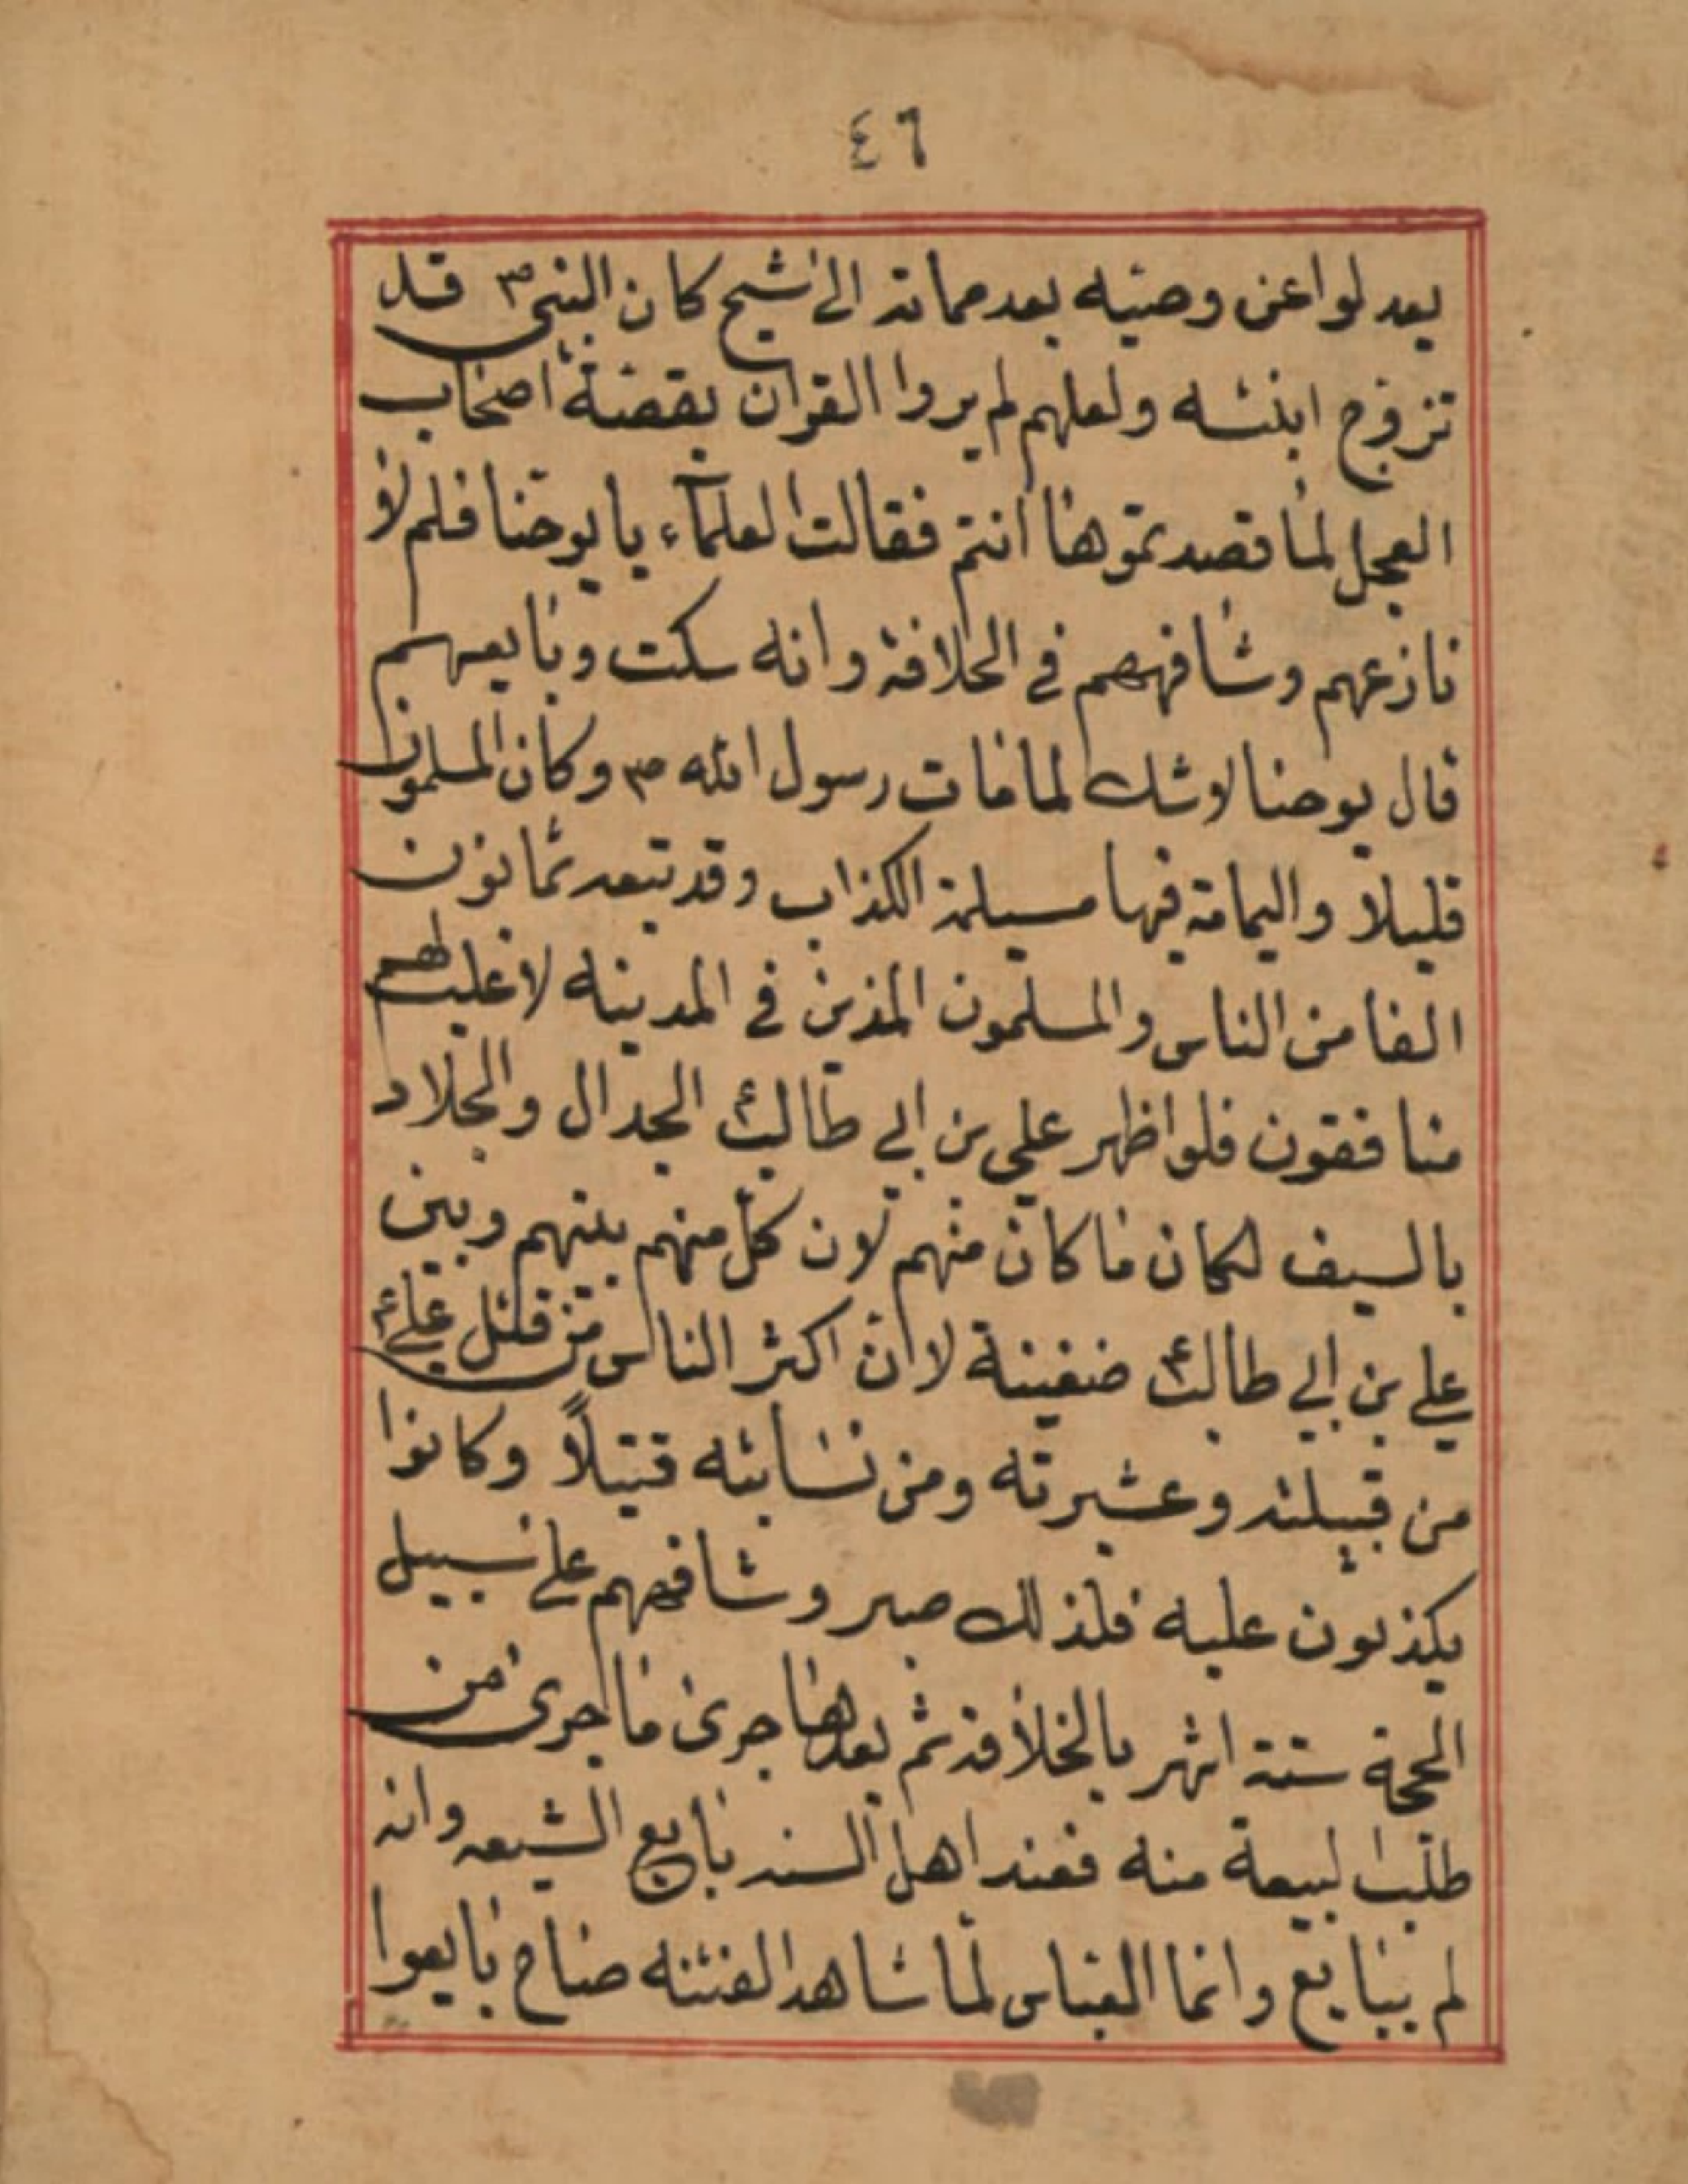 ٤٦
يعدلوا عن وصيه بعد مماته الى شيح كان النبي ص قد
تزوج ابنته ولعلهم لم يروا القران بقصة اصحاب
العجل لما قصدتموها انتم فقالت العلماء يا يوحنا فلم لا
نازعهم وشافههم في الخلافة وانه سكت وبايعهم
قال يوحنا لا شك لما مات رسول الله ص وكان المسلمون
قليلا واليمامة فيها مسيلمة الكذاب وقد تبعه ثمانون
الفا من الناس والمسلمون الذين في المدينه لاغلبهم
منافقون فلو اظهر علي بن ابي طالب ع الجدال والجلاد
بالسيف لكان ما كان منهم لان كل منهم بينهم وبين
علي بن ابي طالب ع ضغينة لان اكثر الناس من قتل علي ع
من قبيلته وعشيرته ومن نسابته قتيلاً وكانوا
يكذبون عليه فلذلك صبر وشافههم على سبيل
الحجة ستة اشهر بالخلافة ثم بعدها جرى ما جرى من
طلب البيعة منه فعند اهل السنه بايع الشيعه وانه
لم يبايع وانما العباس لما شاهد الفتنه صاح بايعوا